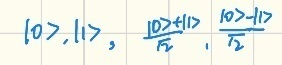 |0>, |1>, |0>+|1>/√2, |0>-|1>/√2